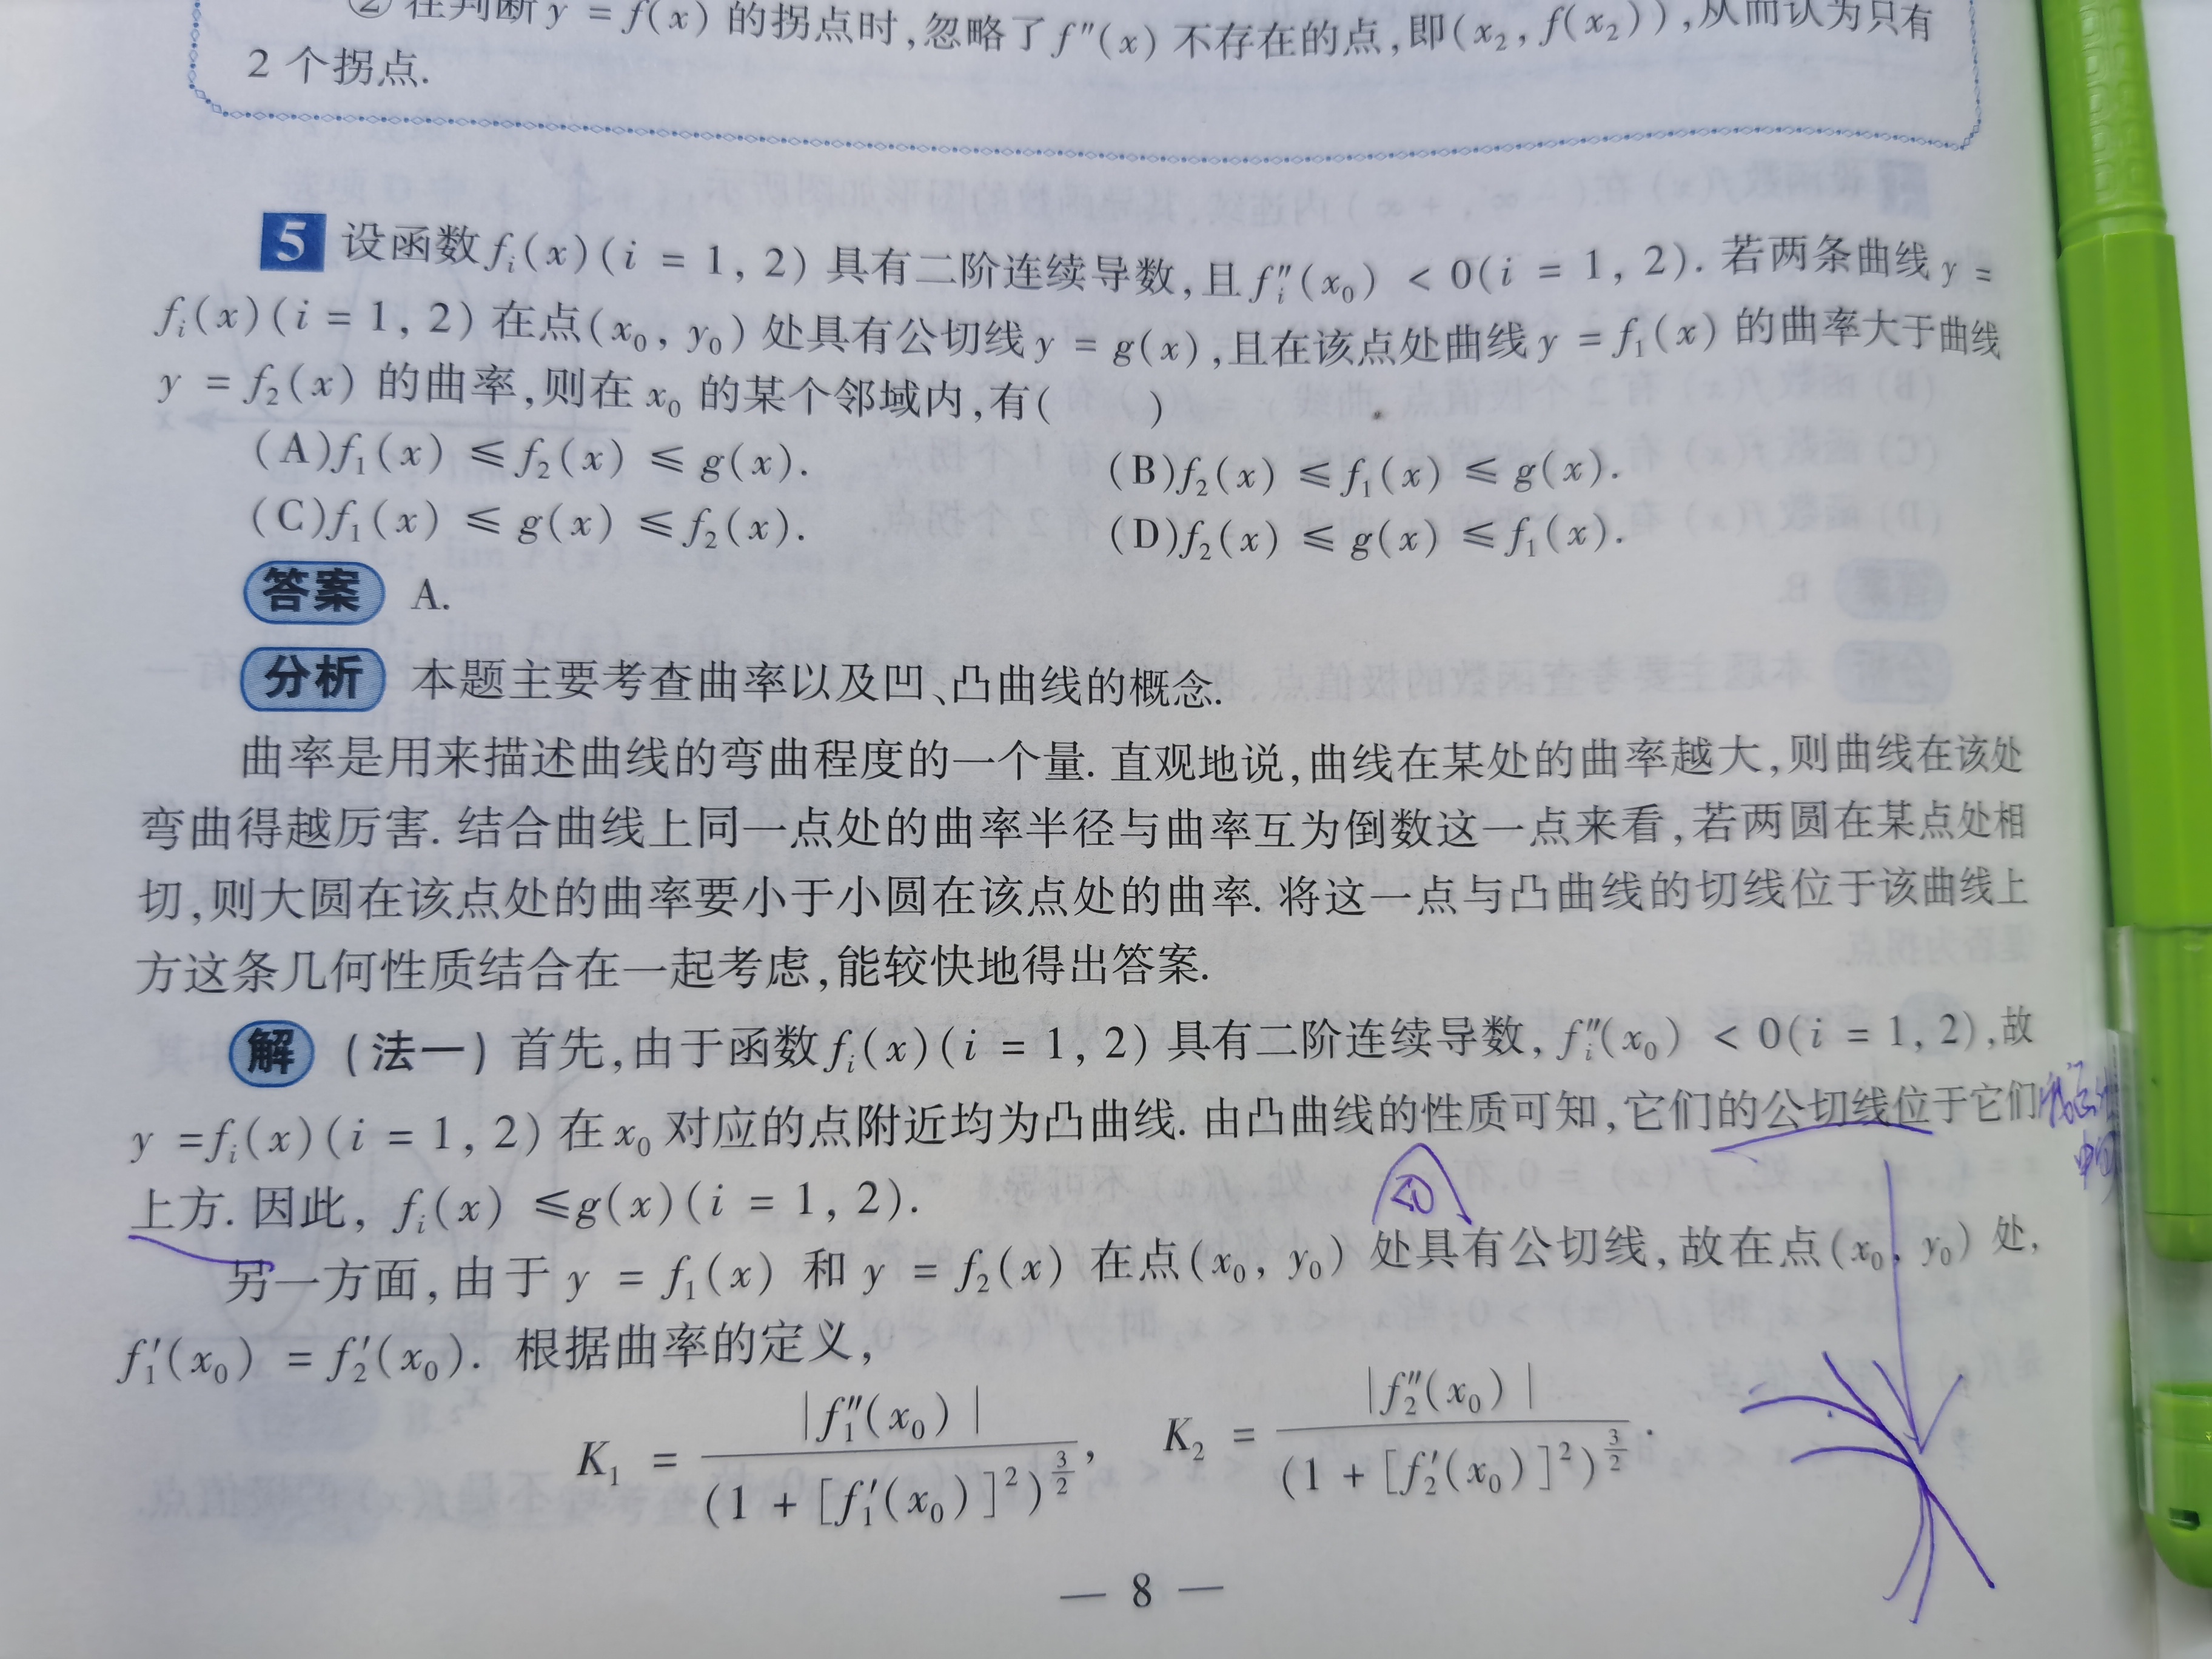 ② 在判断 y = f(x) 的拐点时,忽略了 f″(x) 不存在的点,即(x₂, f(x₂)),从而认为只有
2 个拐点.
5 设函数 fᵢ(x)(i = 1, 2) 具有二阶连续导数,且 fᵢ″(x₀) < 0(i = 1, 2). 若两条曲线 y =
fᵢ(x)(i = 1, 2) 在点(x₀, y₀) 处具有公切线 y = g(x),且在该点处曲线 y = f₁(x) 的曲率大于曲线
y = f₂(x) 的曲率,则在 x₀ 的某个邻域内,有( )
(A)f₁(x) ≤ f₂(x) ≤ g(x). (B)f₂(x) ≤ f₁(x) ≤ g(x).
(C)f₁(x) ≤ g(x) ≤ f₂(x). (D)f₂(x) ≤ g(x) ≤ f₁(x).
答案 A.
分析 本题主要考查曲率以及凹、凸曲线的概念.
曲率是用来描述曲线的弯曲程度的一个量. 直观地说,曲线在某处的曲率越大,则曲线在该处
弯曲得越厉害. 结合曲线上同一点处的曲率半径与曲率互为倒数这一点来看,若两圆在某点处相
切,则大圆在该点处的曲率要小于小圆在该点处的曲率. 将这一点与凸曲线的切线位于该曲线上
方这条几何性质结合在一起考虑,能较快地得出答案.
解 (法一) 首先,由于函数 fᵢ(x)(i = 1, 2) 具有二阶连续导数, fᵢ″(x₀) < 0(i = 1, 2),故
y =fᵢ(x)(i = 1, 2) 在 x₀ 对应的点附近均为凸曲线. 由凸曲线的性质可知,它们的公切线位于它们
上方. 因此, fᵢ(x) ≤g(x)(i = 1, 2).
另一方面,由于 y = f₁(x) 和 y = f₂(x) 在点(x₀, y₀) 处具有公切线,故在点(x₀, y₀) 处,
f₁′(x₀) = f₂′(x₀). 根据曲率的定义,
K₁ = |f₁″(x₀)| / (1 + [f₁′(x₀)]²)^(3/2), K₂ = |f₂″(x₀)| / (1 + [f₂′(x₀)]²)^(3/2).
— 8 —